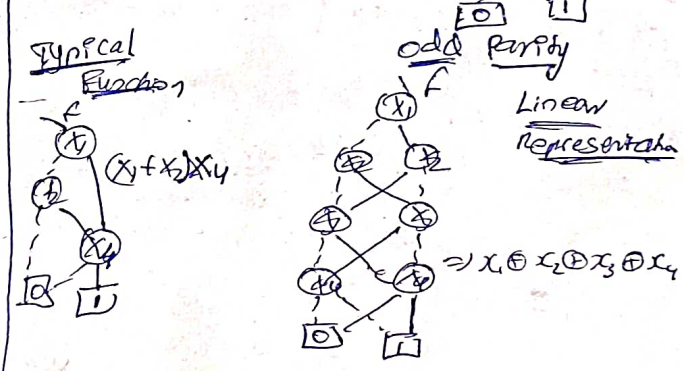 0 1
Typical
Function
f
x₁
x₂
(x₁+x₂)x₄
x₄
0 1
odd Parity
f
x₁
Linear
Representation
x₂ x₂
x₃ x₃
x₄ x₄ ⇒ x₁ ⊕ x₂ ⊕ x₃ ⊕ x₄
0 1